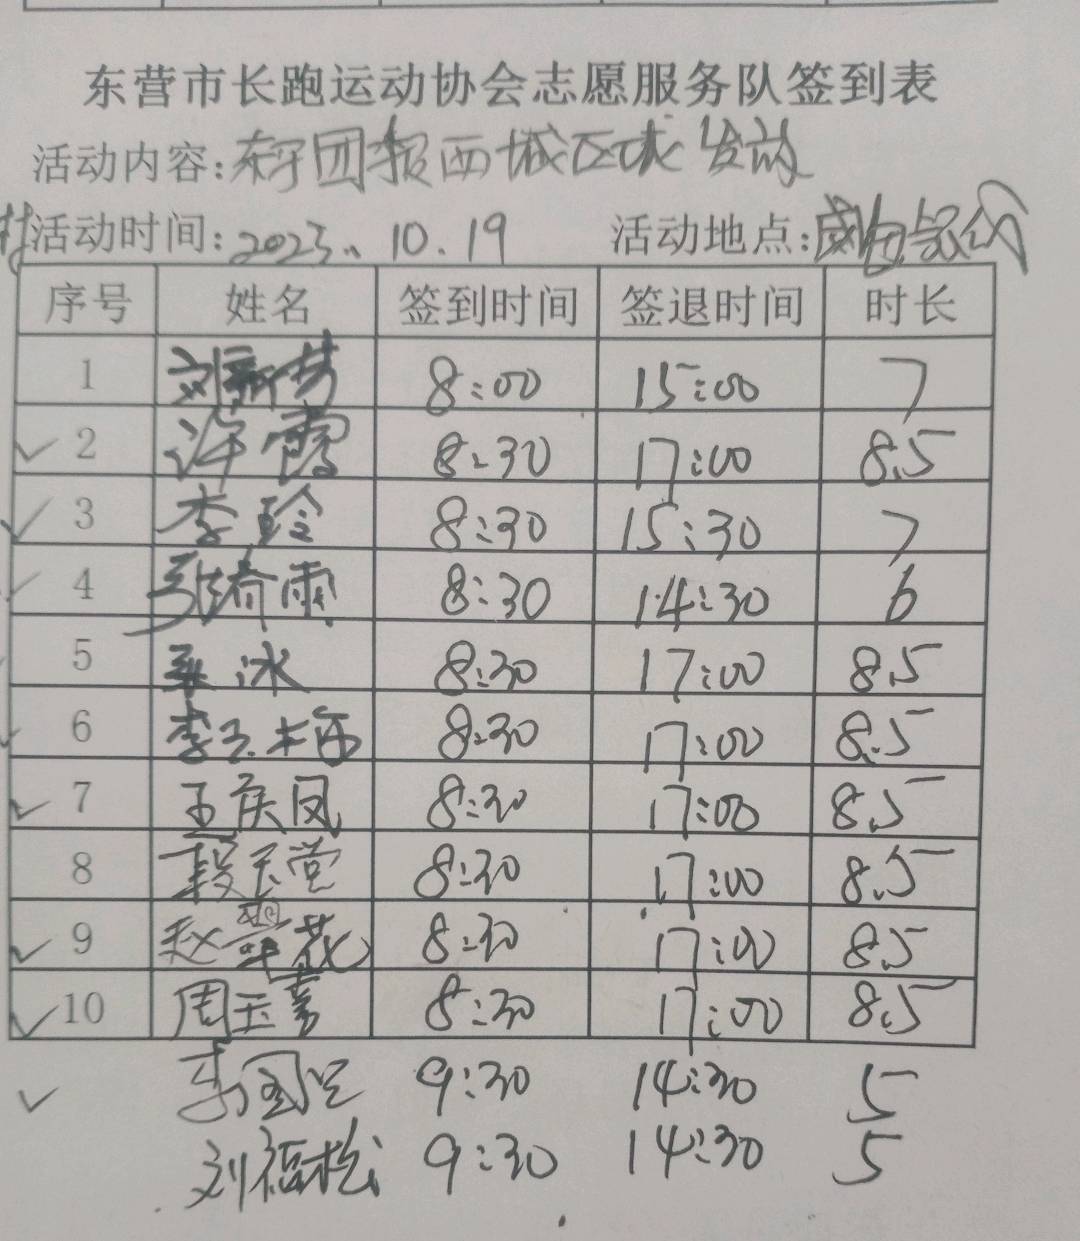 东营市长跑运动协会志愿服务队签到表
活动内容:东营团报西城区域发放
活动时间:2023.10.19 活动地点:
序号 姓名 签到时间 签退时间 时长
1 刘新梦 8:00 15:00 7
✓ 2 许霞 8:30 17:00 8.5
✓ 3 李玲 8:30 15:30 7
✓ 4 张春雨 8:30 14:30 6
5 冰 8:30 17:00 8.5
✓ 6 李玉梅 8:30 17:00 8.5
✓ 7 王庆凤 8:30 17:00 8.5
8 段玉堂 8:30 17:00 8.5
✓ 9 赵翠花 8:30 17:00 8.5
✓ 10 周玉喜 8:30 17:00 8.5
✓ 9:30 14:30 5
刘福松 9:30 14:30 5